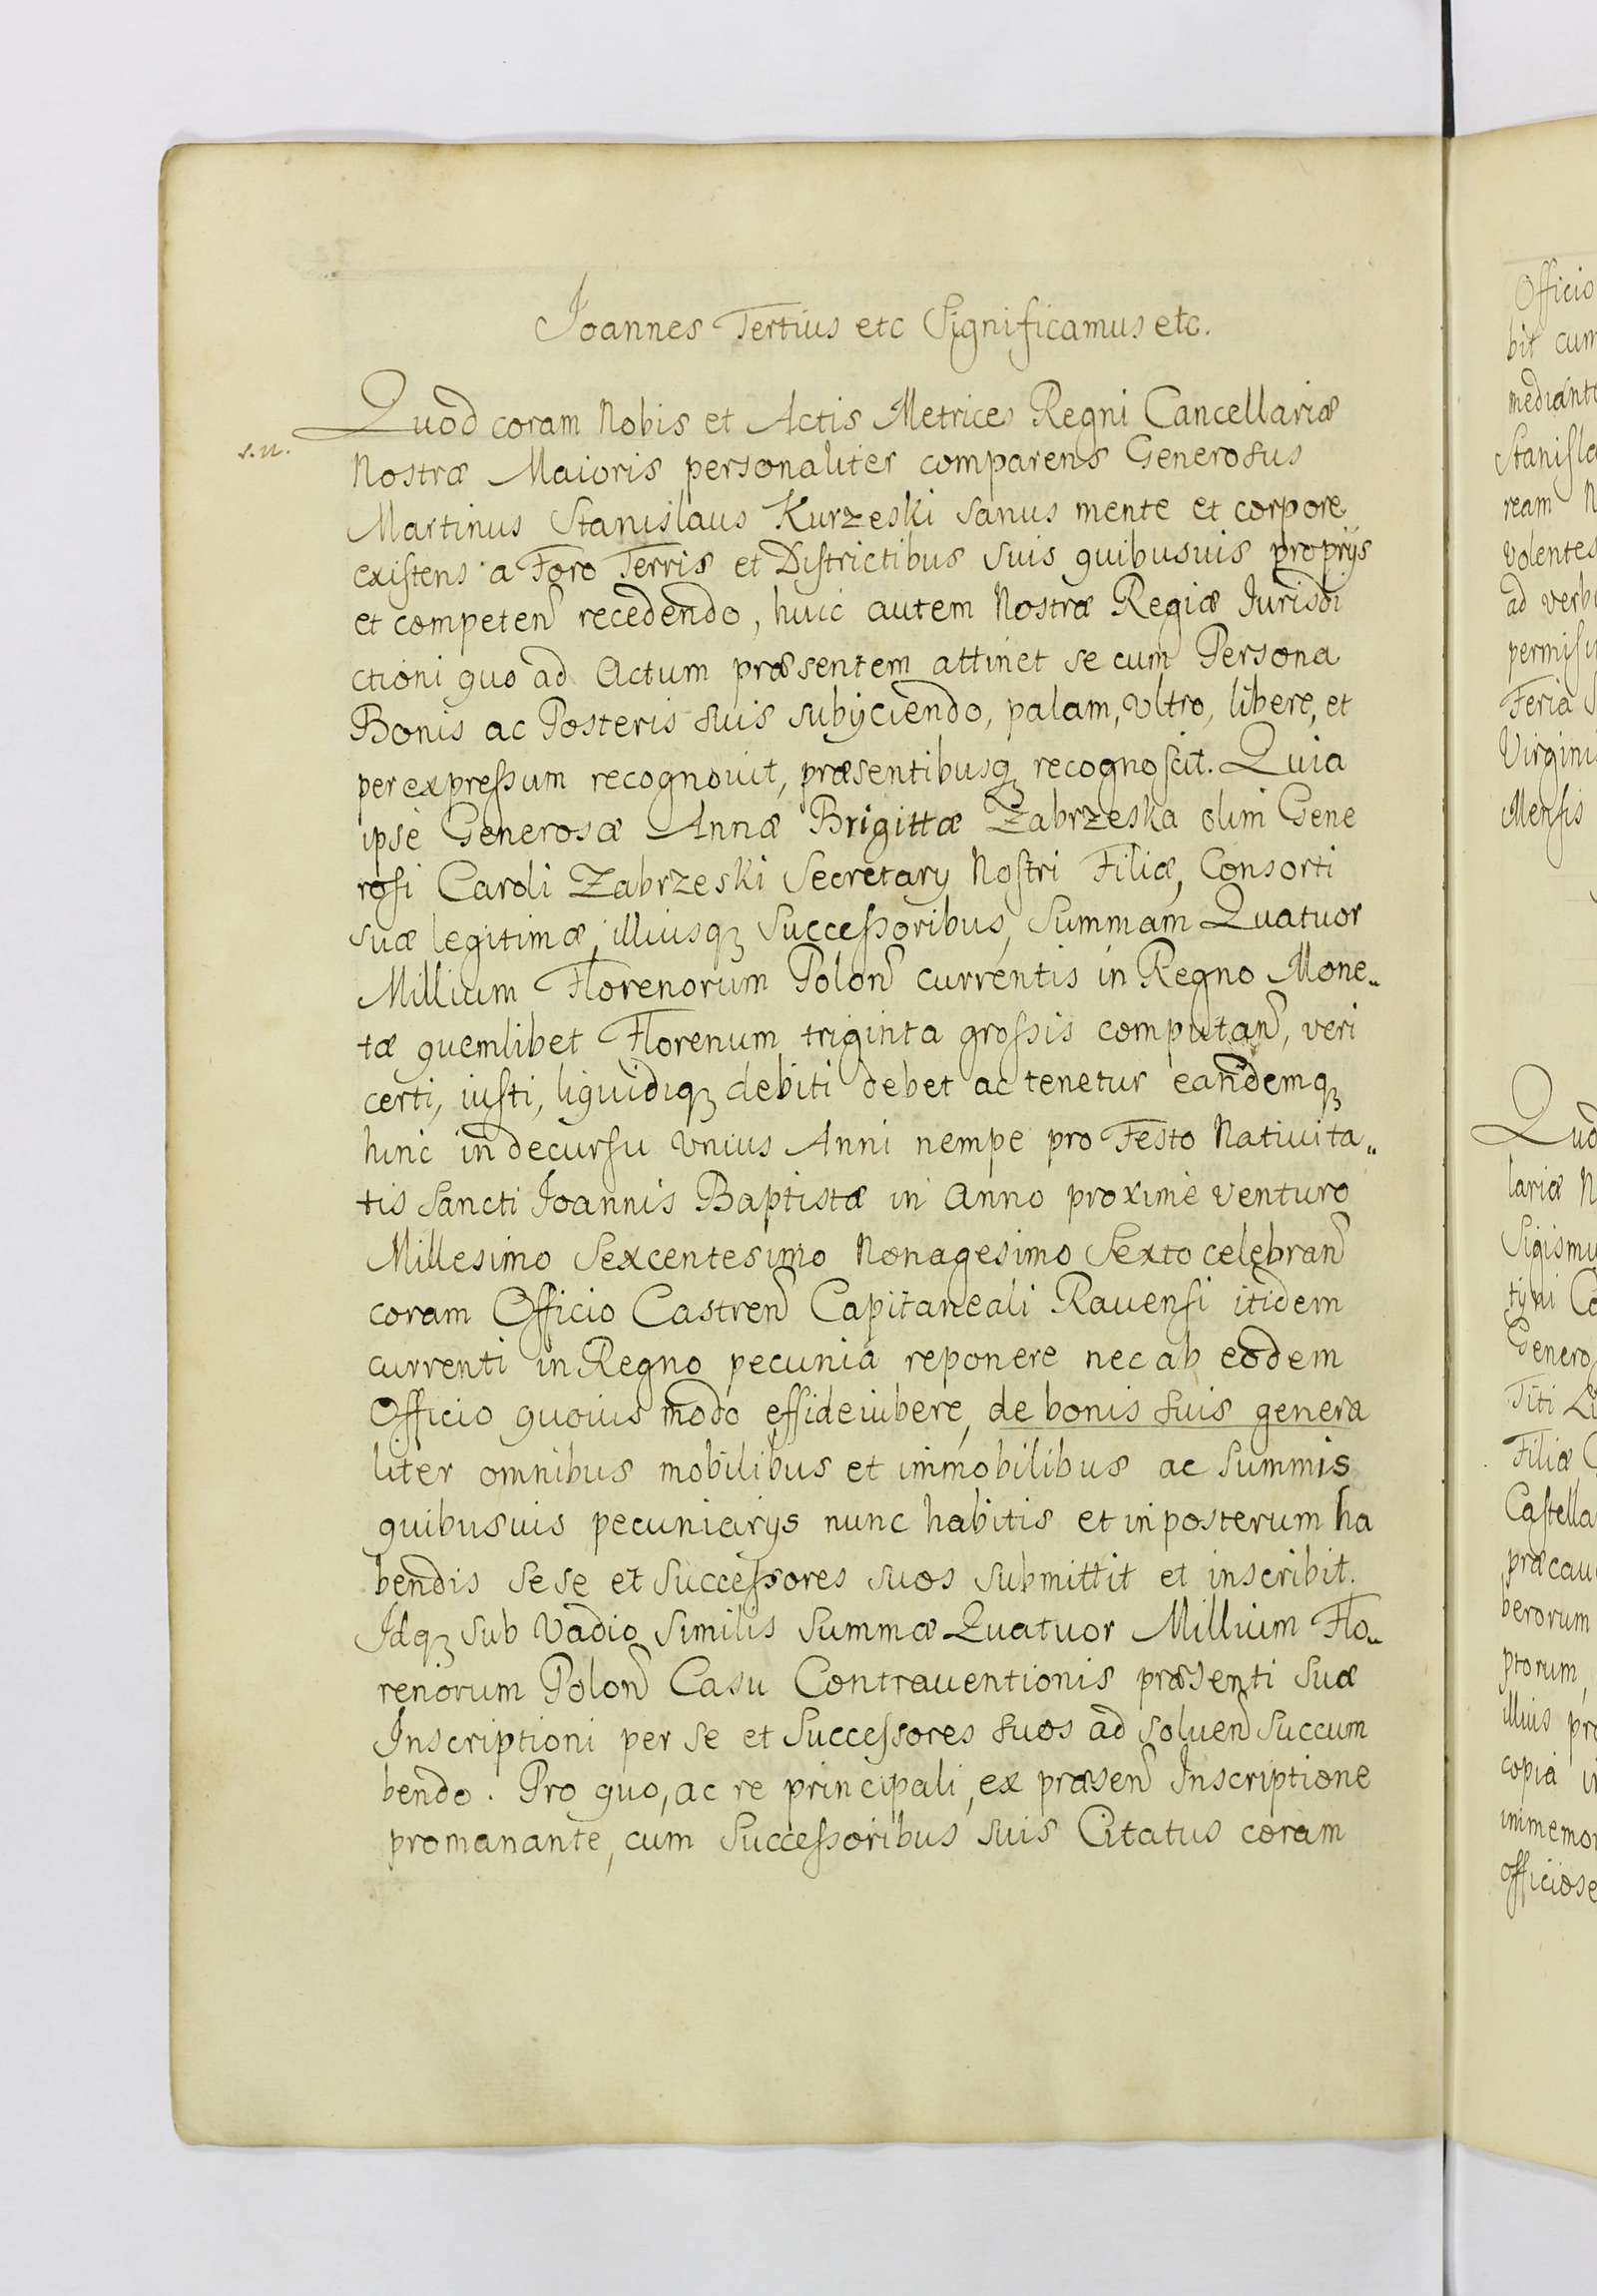 Joannes Tertius etc Significamus etc.
s.n.
Quod coram Nobis et Actis Metrices Regni Cancellariæ
Nostræ Maioris personaliter comparens Generosus
Martinus Stanislaus Kurzeski sanus mente et corpore
existens a Foro Terris et Districtibus suis quibusuis proprijs
et competen recedendo, huic autem Nostræ Regiæ Iurisdi
ctioni quo ad Actum præsentem attinet se cum Persona
Bonis ac Posteris suis subijciendo, palam, Vltro, libere, et
per expressum recognouit, præsentibusq recognoscit. Quia
ipse Generosæ Annæ Brigittæ Zabrzeska olim Gene
rosi Caroli Zabrzeski Secretarij Nostri Filiæ, Consorti
suæ legitimæ, illiusq Successoribus, Summam Quatuor
Millium Florenorum Polon currentis in Regno Mone„
tæ quemlibet Florenum triginta grossis computan, veri
certi, iusti, liquidiq debiti debet ac tenetur eandemq
hinc in decursu vnius Anni nempe pro Festo Natiuita„
tis Sancti Joannis Baptistæ in Anno proxime venturo
Millesimo Sexcentesimo Nonagesimo Sexto celebran
coram Officio Castren Capitaneali Rauensi itidem
currenti in Regno pecunia reponere nec ab eodem
Officio quouis modo effideiubere, de bonis suis genera
liter omnibus mobilibus et immobilibus ac Summis
quibusuis pecuniarijs nunc habitis et in posterum ha
bendis sese et Successores suos submittit et inscribit.
Idq sub Vadio similis Summæ Quatuor Millium Flo„
renorum Polon Casu Contrauentionis præsenti suæ
Inscriptioni per se et Successores suos ad soluen succum
bendo. Pro quo, ac re principali, ex præsen Inscriptione
promanante, cum Successoribus suis Citatus coram
Officio
bit cum
ream
volentes
Feria
Mensis
lariæ
Genero
Titi
Filiæ
berorum
ptorum,
illius
copia
officiose